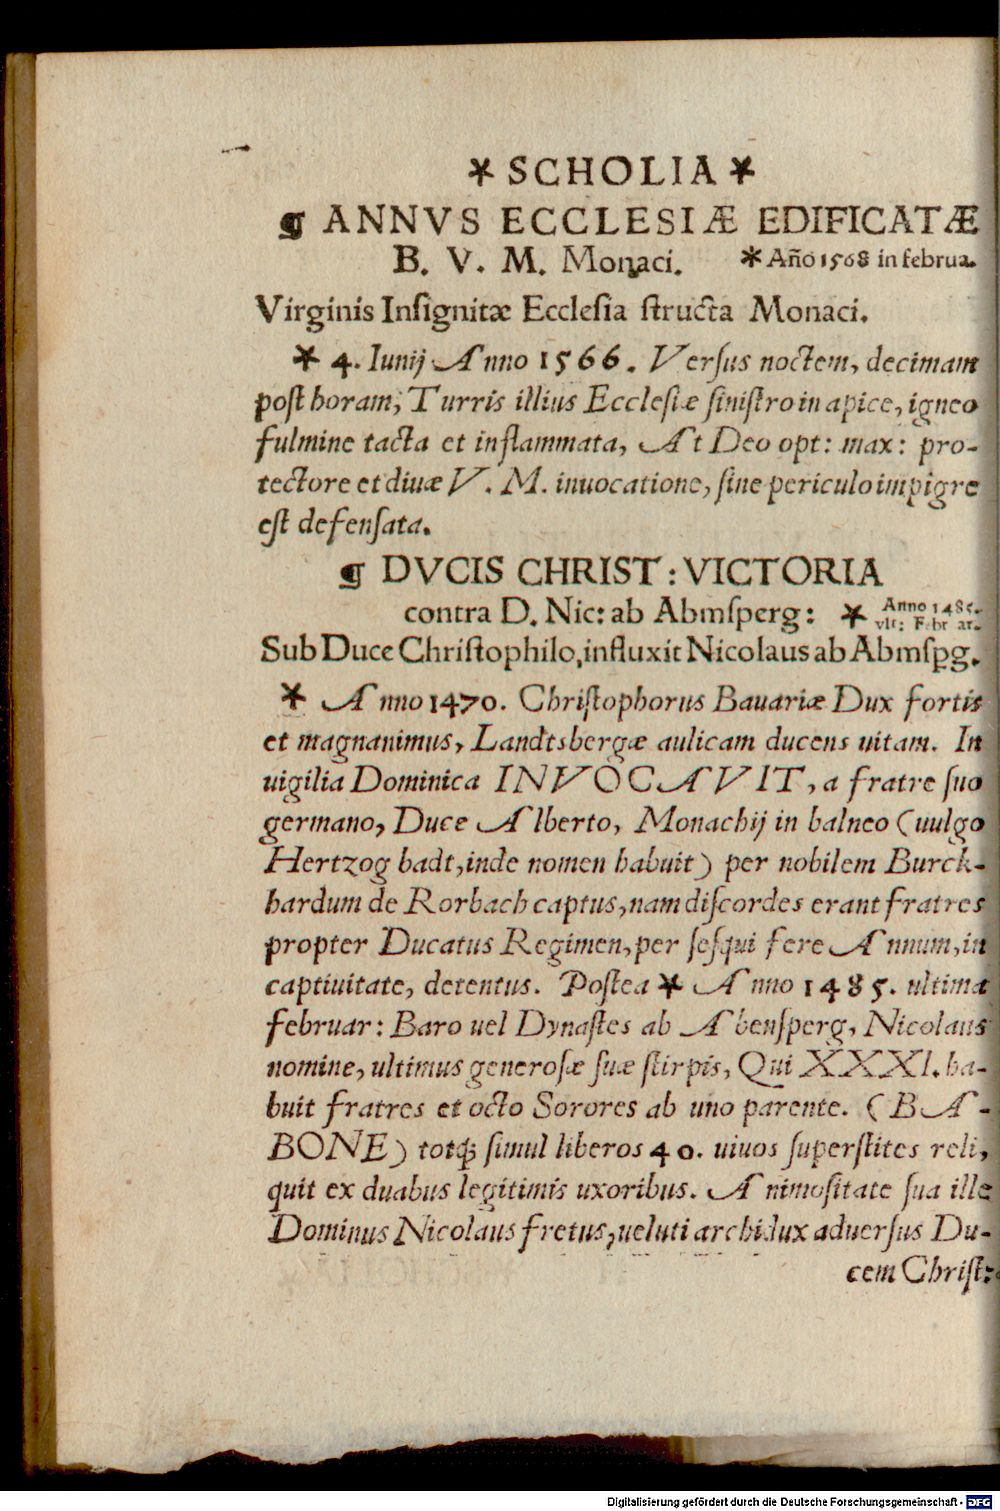 * SCHOLIA *
¶ ANNVS ECCLESIÆ EDIFICATÆ
B. V. M. Monaci. * Año 1568 in februa.
Virginis Inſignitæ Eccleſia ſtructa Monaci.
* 4. Iunij Anno 1566. Verſus noctem, decimam
poſt horam, Turris illius Eccleſiæ ſiniſtro in apice, igneo
fulmine tacta et inflammata, At Deo opt: max: pro-
tectore et diuæ V. M. inuocatione, ſine periculo impigre
eſt defenſata.
¶ DVCIS CHRIST: VICTORIA
contra D. Nic: ab Abmſperg: * Anno 1485.
vlt: Febr ar.
Sub Duce Chriſtophilo, influxit Nicolaus ab Abmſpg.
* Anno 1470. Chriſtophorus Bauariæ Dux fortis
et magnanimus, Landtsbergæ aulicam ducens uitam. In
uigilia Dominica INVOCAVIT, a fratre ſuo
germano, Duce Alberto, Monachij in balneo (uulgo
Hertzog badt, inde nomen habuit) per nobilem Burck-
hardum de Rorbach captus, nam diſcordes erant fratres
propter Ducatus Regimen, per ſeſqui fere Annum, in
captiuitate, detentus. Poſtea * Anno 1485. ultima
februar: Baro uel Dynaſtes ab Abenſperg, Nicolaus
nomine, ultimus generoſæ ſuæ ſtirpis, Qui XXXI. ha-
buit fratres et octo Sorores ab uno parente. (BA-
BONE) totq́; ſimul liberos 40. uiuos ſuperſtites reli,
quit ex duabus legitimis uxoribus. Animoſitate ſua ille
Dominus Nicolaus fretus, ueluti archidux aduerſus Du-
cem Chriſt:
Digitalisierung gefördert durch die Deutsche Forschungsgemeinschaft - DFG